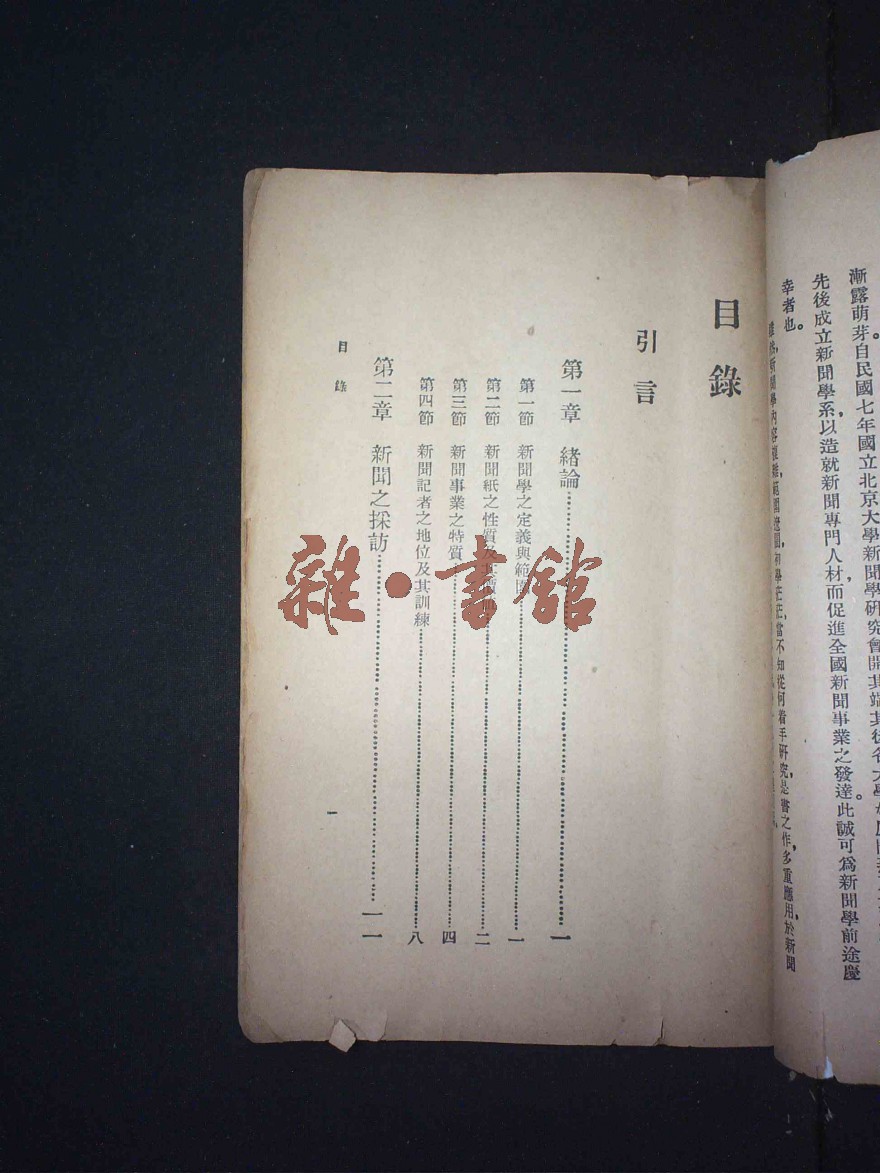 漸露萌芽。自民國七年國立北京大學新聞學研究會開其端其後各大
先後成立新聞學系，以造就新聞專門人材，而促進全國新聞事業之發達。此誠可爲新聞學前途慶
幸者也。
新聞學內容複雜，範圍遼闊，初學茫茫，當不知從何着手研究，是書之作，多重應用，於新聞
目錄
引言
第一章 緒論……一
第一節 新聞學之定義與範圍……一
第二節 新聞紙之性質及……二
第三節 新聞事業之特質……四
第四節 新聞記者之地位及其訓練……八
第二章 新聞之採訪……一一
目錄
一
雜·書館